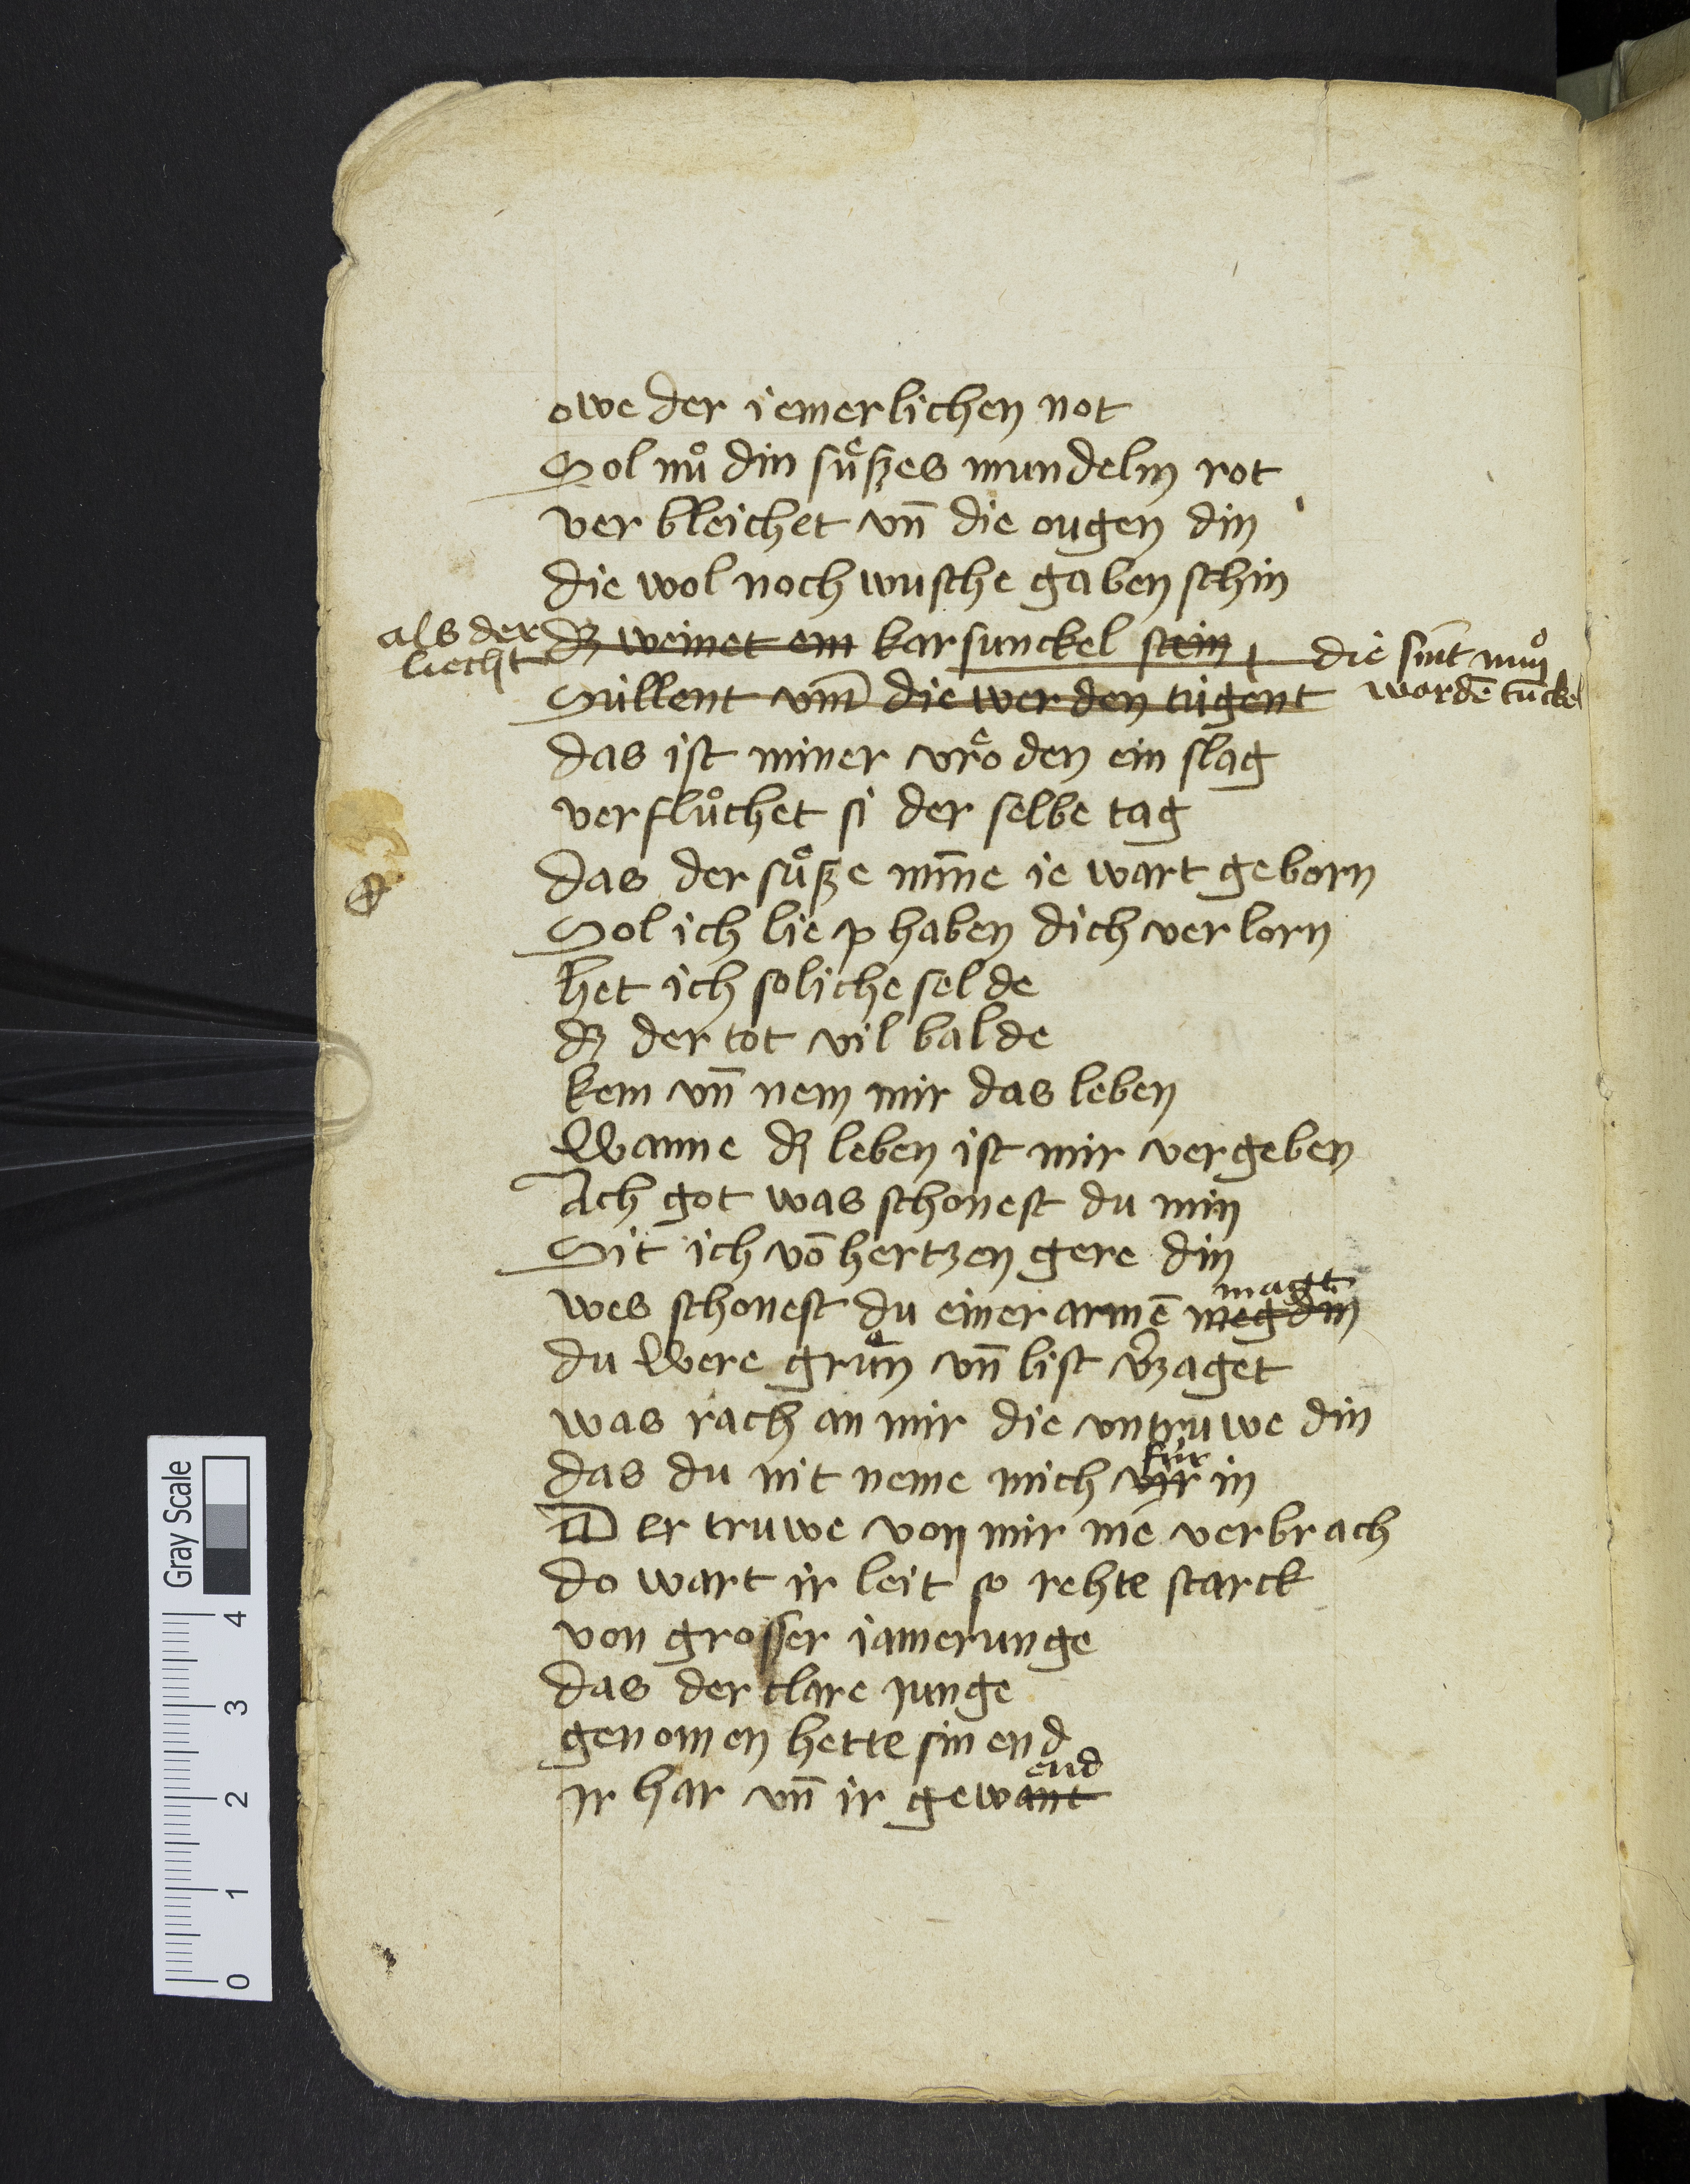 owe der iemerlichen not
Sol nuͦ din suͤßes mundelin rot
ver bleichet vn̄ die ougen din
die wol noch wusche gaben schin
als der dz weinet ein karfunckel stein die sint nuͦn
liecht
Süllent vm̄ die werden tügent wordē tunckel
das ist miner vroͤden ein slag
verfluͦchet si der selbe tag
das der suͤße min̄e ie wart geborn
Sol ich liep haben dich verlorn
het ich soliche selde
dz der tot vil balde
kem vn̄ nem mir das leben
Wanne dz leben ist mir vergeben
Ach got was schonest du min
Sit ich vō hertzen gere din
magt
wes schonest du einer armē megdin
du Were gruͤn vn̄ list v̓zaget
was rach an mir die vntruwe din
für
das du nit neme mich vir in
Der truwe von mir nie verbrach
do wart ir leit so rehte starck
von grosser iamerunge
das der clare junge
genomen hette sin end
end
jr har vn̄ ir gewant
Gray Scale
0 1 2 3 4